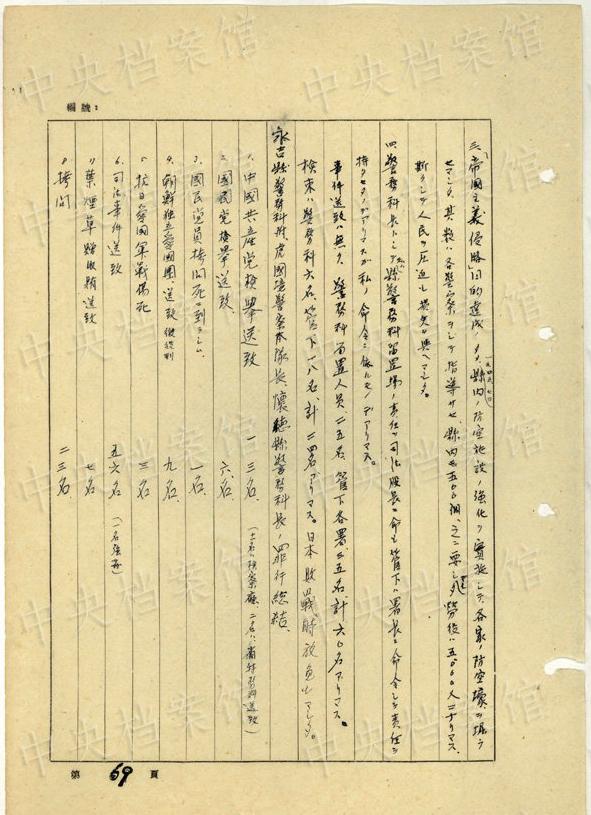 編號：
三、「帝國主義侵略」目的達成ノタメ縣內ノ防空施設ノ強化ヲ實施シテ、各家ノ防空壕ヲ掘ラ
一九四五、七、
セマシタ、其數ハ各警察ヲシテ指導サセ縣內ニ五五〇〇個、之ニ要シタ勞役ハ五、〇〇〇人ニナリマス
斯クシテ人民ヲ圧迫シ損失ヲ與ヘマシタ。
四、警務科長トシテ縣警務科留置場ノ責任ヲ司法股長ニ命シ管下ハ署長ニ命令シテ責任ヲ
持タセタノデアリマスガ私ノ命令ニ依ルモノデアリマス。
事件送致ハ無ク、警務科留置人員二五名、管下各署三五名計六〇名アリマス。
檢束ハ警務科六名、管下一八名、計二四名アリマス。日本敗戰時放免シマシタ。
永吉縣警務科附、虎頭國境警察本隊長、懷德縣警務科長ノ罪行總結、
1、中國共產党檢擧送致 一三名 （十一名ハ檢察廳、二名ハ省特務科送致）
2、國民党檢擧送致、 六名
3、國民党員拷問死ニ到ラシム、 一名
4、朝鮮独立愛國團ノ送致 九名
5、抗日愛國軍戰傷死 三名
6、司法事件送致 五六名 （一名強盗）
7、葉煙草 送致 七名
8、拷問 二三名
第 69 頁
中央档案馆